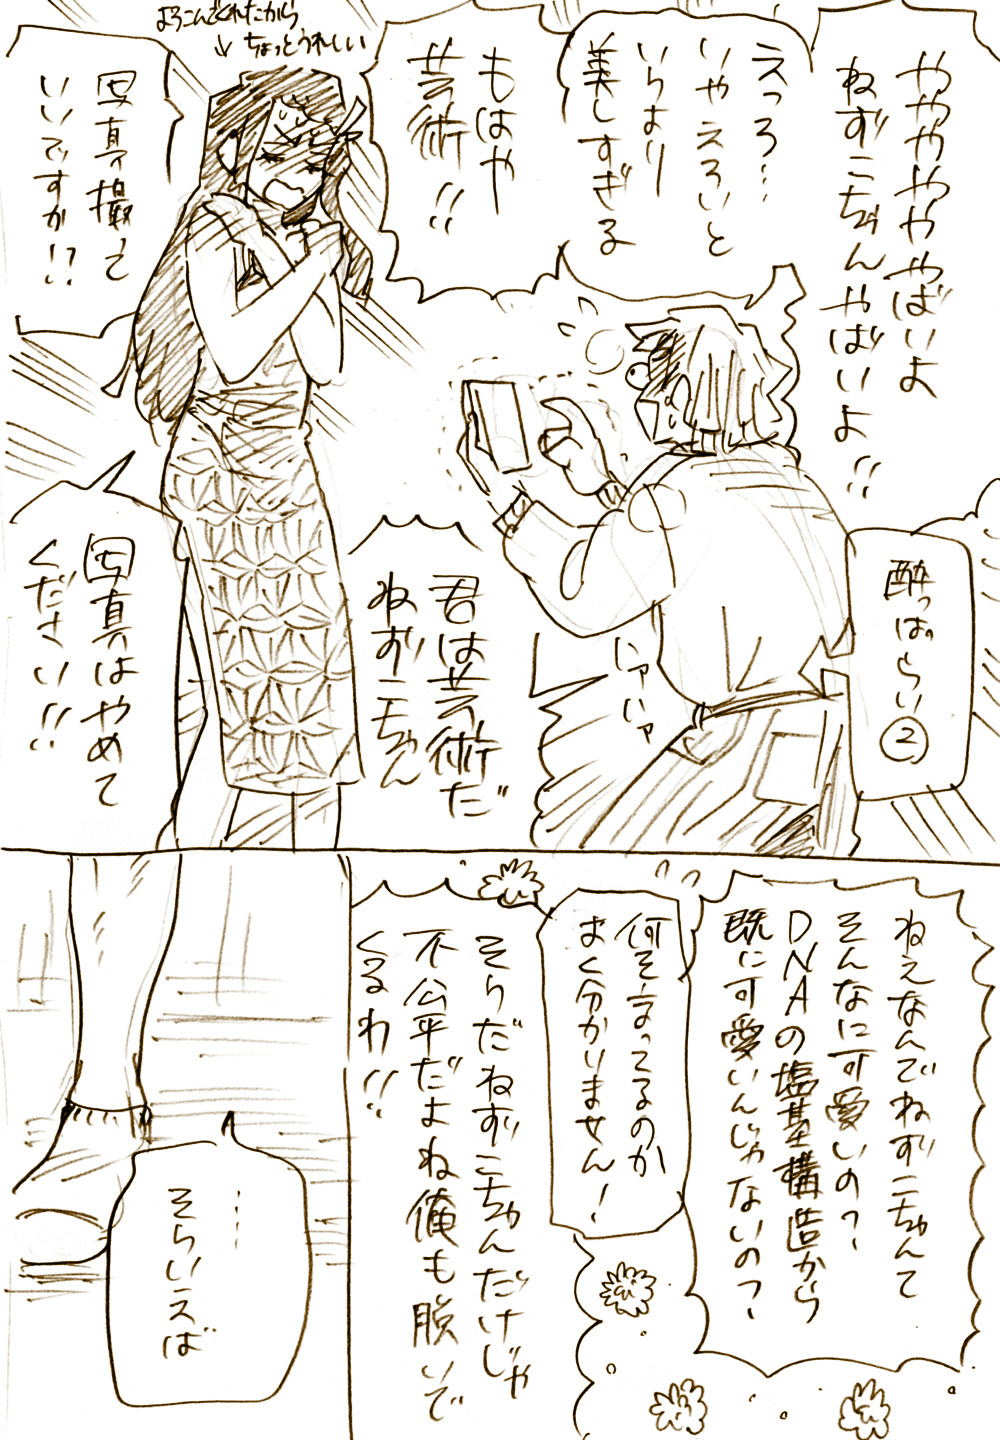 ややややややばいよ
ねずこちゃんやばいよ!!
えっろ…
いやえろいと
いうより
美しすぎる
もはや
芸術!!
よろこんでくれたから
↓ちょっとうれしい
写真撮って
いいですか!?
酔っぱらい②
ハァハァ
君は芸術だ
ねずこちゃん
写真はやめて
ください!!
ねえなんでねずこちゃんて
そんなに可愛いの?
DNAの塩基構造から
既に可愛いんじゃないの?
何を言ってるのか
よく分かりません!
そうだねずこちゃんだけじゃ
不公平だよね俺も脱いで
くるわ!!
……
そういえば